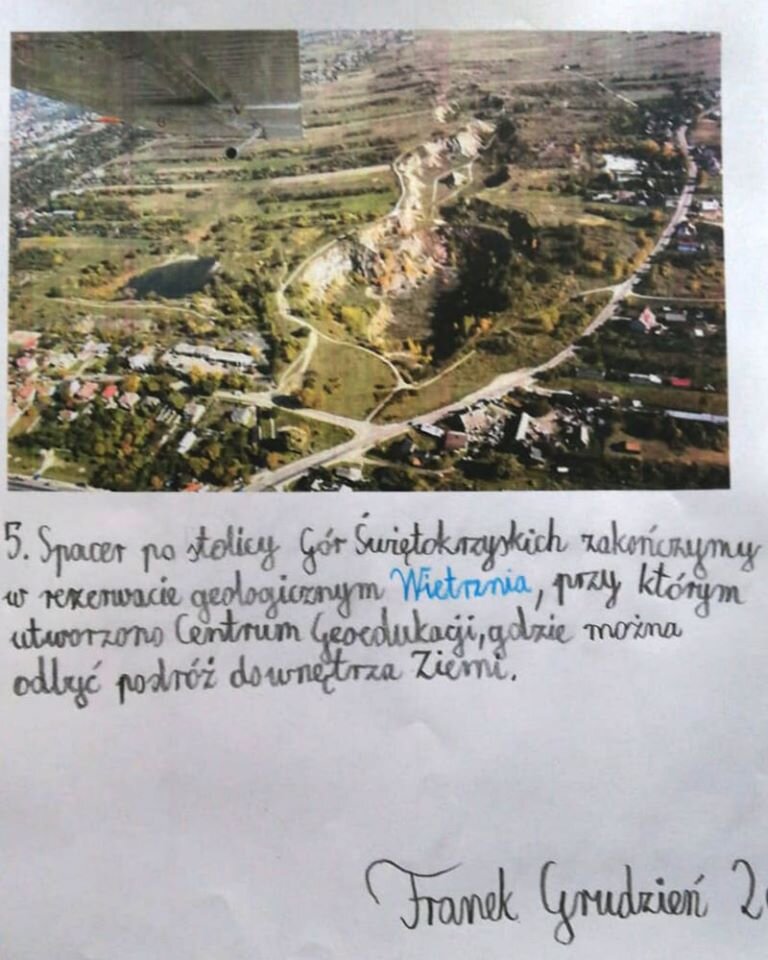 5. Spacer po stolicy Gór Świętokrzyskich zakończymy
w rezerwacie geologicznym Wietrznia, przy którym
utworzono Centrum Geoedukacji, gdzie można
odbyć podróż do wnętrza Ziemi.
Franek Grudzień